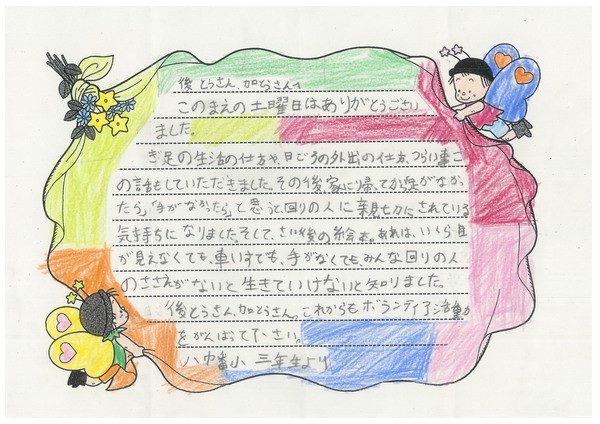 後とうさん、加とうさんへ
このまえの土曜日はありがとうござい
ました。
ぎ足の生活の仕方や、日じょうの外出の仕方、つらい事
の話もしていただきました。その後、家に帰ってから足がなかっ
たら、「手がなかったら」と思うと、回りの人に親切にされている
気持ちになりました。そして、さい後の絵本。あれは、いくら目
が見えなくても、車いすでも、手がなくても、みんな回りの人
のささえがないと生きていけないと知りました。
後とうさん、加とうさん。これからもボランティア活動
をがんばって下さい。
八中番小 三年生より